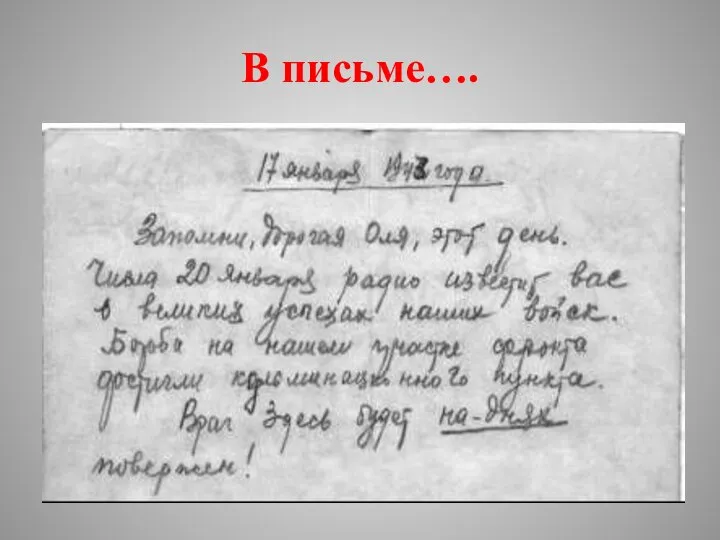 В письме….
17 января 1943 года.
Запомни, дорогая Оля, этот день.
Числа 20 января радио известит вас
о великих успехах наших войск.
Борьба на нашем участке фронта
достигли кульминационного пункта.
Враг здесь будет на-днях
повержен!